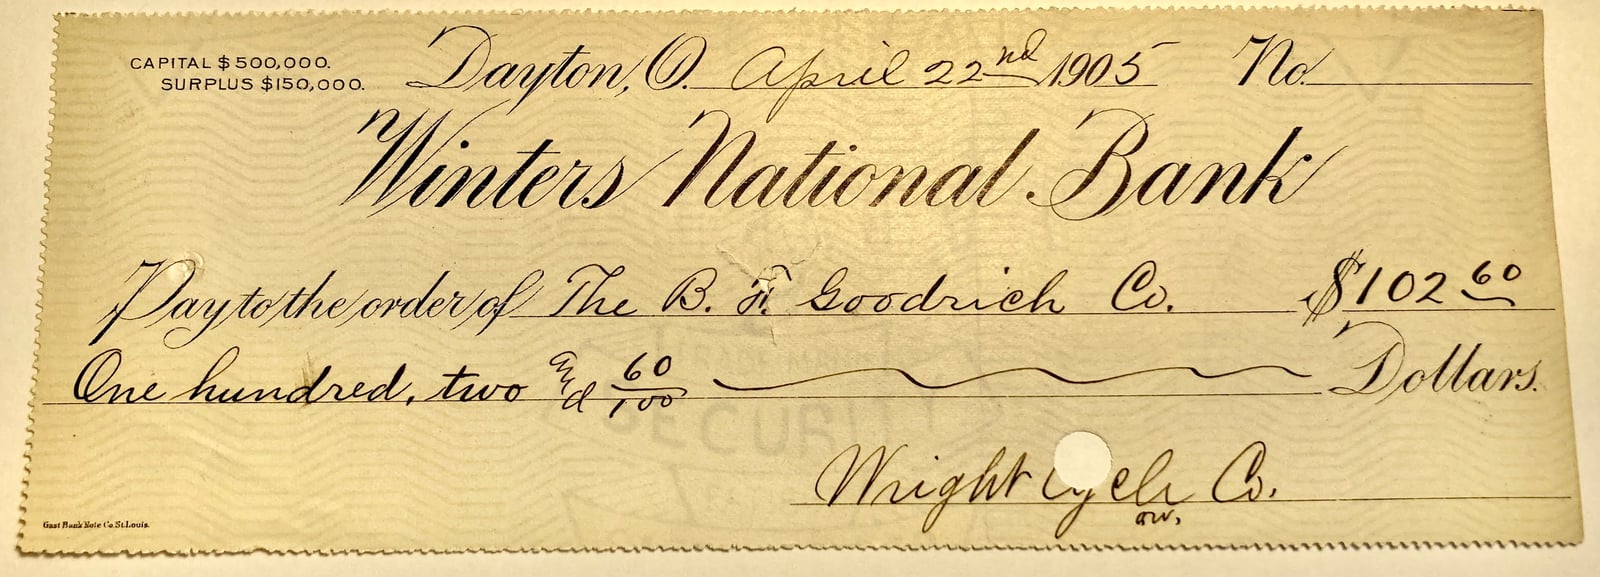 CAPITAL $500,000.
SURPLUS $150,000.
Dayton, O. April 22nd 1905 No.
Winters National Bank
Pay to the order of The B. F. Goodrich Co. $102 60
One hundred, two and 60/100 Dollars.
SECURITY
Wright Cycle Co.
ow.
Gast Bank Note Co. St. Louis.